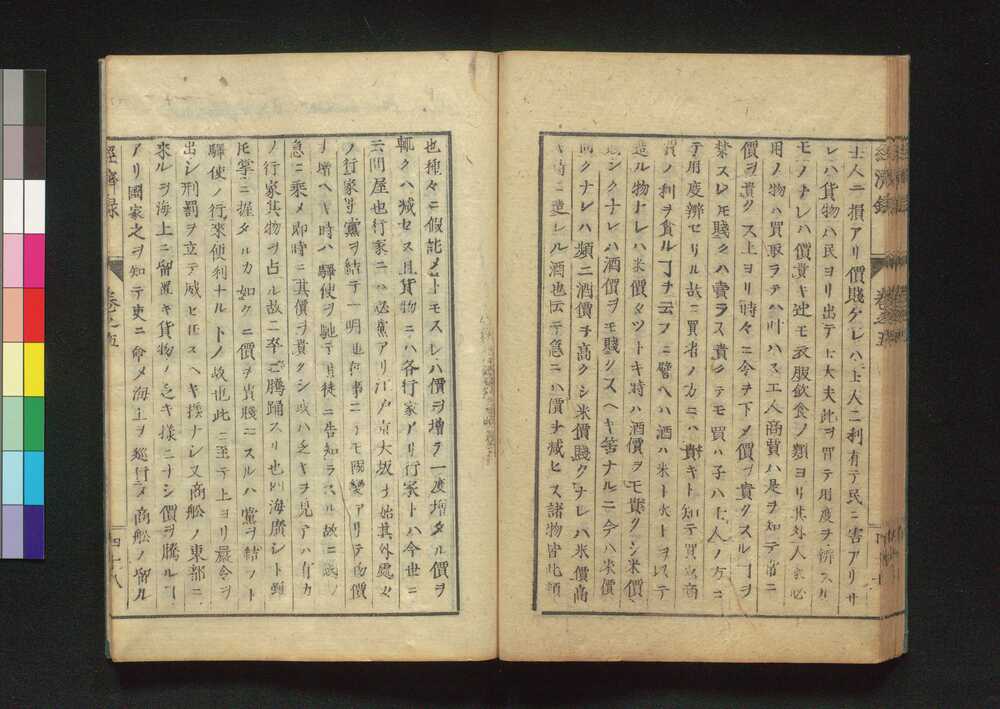 士人ニ損アリ價賤ケレハ士人ニ利有テ民ニ害アリサ
レハ貨物ハ民ヨリ出テ士大夫此ヲ買テ用度ヲ辨スル
モノナレハ價貴キ迚モ衣服飲食ノ類ヨリ其外人家必
用ノ物ハ買取ラテハ叶ハス工人商賈ハ是ヲ知テ常ニ
價ヲ貴クス上ヨリ時々ニ令ヲ下メ價ヲ貴クスルヿヲ
禁スレ𪜈賤クハ賣ラス貴クテモ買ハ子ハ士人ノ方ニ
テ用度辨セサル故ニ買者ノ方ニハ貴キト知テ買
賈ノ利ヲ貪ルヿヲ云フニ譬ヘハ酒ハ米ト水トヲ以テ
造ル物ナレハ米價タツトキ時ハ酒價ヲモ貴クシ米價
賤シクナレハ酒價ヲモ賤クスヘキ筈ナルニ今ハ米價
高クナレハ類ニ酒價ヲ高クシ米價賤クナレハ米價高
キ時ニ造レル酒也云テ急ニハ價ヲ減セス諸物皆此類
也種々ニ假託メトモスレハ價ヲ增ラ一度增タル價ヲ
輒クハ減セス且貨物ニハ各行家アリ行家トハ今世ニ
云問屋也行家ニハ必黨アリ江戸京大坂ヲ始其外處々
ノ行家皆黨ヲ結テ一朝
增ヘキ時ハ驛使ヲ馳テ其徒ニ告知ラスル故ニ
急ニ乘メ即時ニ其價ヲ貴クシ或ハ乏キヲ見テハ有カ
ノ行家其物ヲ占ル故ニ卒ニ騰踊スリ也四海廣シト雖
𪜈掌ニ握タルカ如クニ價ヲ貴賤ニスルハ黨ヲ結フト
驛使ノ行來便利ナルトノ故也此ニ至テ上ヨリ嚴令ヲ
出シ刑罰ヲ立テ威セ𪜈スヘキ樣ナシ又商船ノ東都ニ
來ルヲ海上ニ留置キ貨物ノ乏キ樣ニナシ價ヲ騰ルヿ
アリ國家之ヲ知テ吏ニ命メ海上ヲ巡行メ商船ノ留ル
經濟錄
卷之五
四十八
經濟錄
卷之五